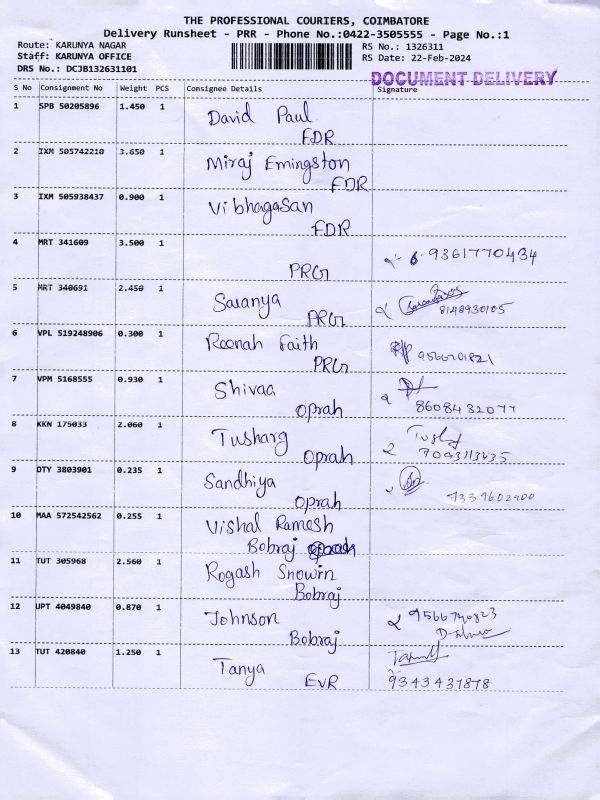 THE PROFESSIONAL COURIERS, COIMBATORE
Delivery Runsheet - PRR - Phone No.:0422-3505555 - Page No.:1
Route: KARUNYA NAGAR
Staff: KARUNYA OFFICE
DRS No.: DCJB132631101
RS No.: 1326311
RS Date: 22-Feb-2024
DOCUMENT DELIVERY
S No Consignment No Weight PCS Consignee Details Signature
1 SPB 50205896 1.450 1 David Paul
FDR
2 IXM 505742210 3.650 1 Miraj Emingston
FDR
3 IXM 505938437 0.900 1 Vibhagasan
FDR
4 MRT 341609 3.500 1
PRG 9361770434
5 MRT 340691 2.450 1 Saranya
PRG 8148930105
6 VPL 519248906 0.300 1 Reenah Faith
PRG
7 VPM 5168555 0.930 1 Shivaa
Oprah 8608432077
8 KKN 175033 2.060 1 Tusharg
Oprah
9 DTY 3803901 0.235 1 Sandhiya
Oprah
10 MAA 572542562 0.255 1 Vishal Ramesh
Bobraj
11 TUT 305968 2.560 1 Rogash Snowin
Bobraj
12 UPT 4049840 0.870 1 Johnson
Bobraj
13 TUT 420840 1.250 1 Tanya
EVR 9343431878